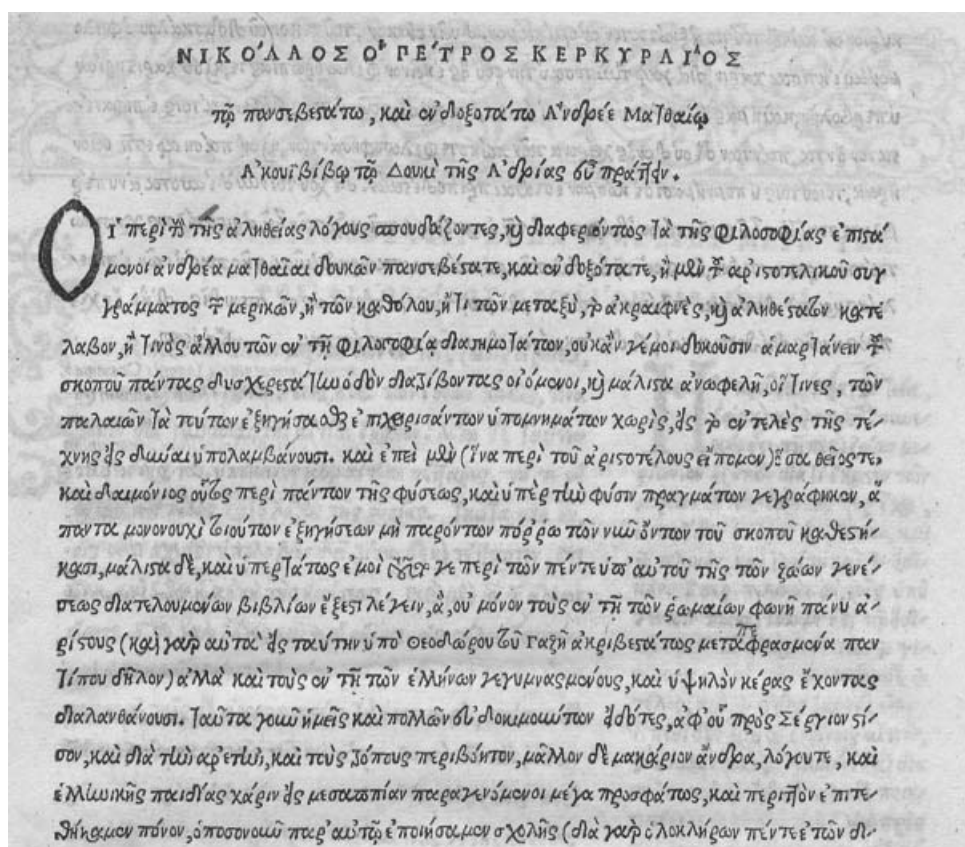 ΝΙΚΟΛΑΟΣ Ὁ ΠΕΤΡΟΣ ΚΕΡΚΥΡΑΙΟΣ
τῷ πανσεβεστάτῳ, καὶ ἐνδοξοτάτῳ Ἀνδρέᾳ Ματθαίῳ
Ἀκουϊβίβῳ τῷ Δουκὶ τῆς Ἀδρίας εὖ πράττειν.
Οἱ περὶ τοὺς τῆς ἀληθείας λόγους σπουδάζοντες, καὶ διαφερόντως τὰ τῆς φιλοσοφίας ἐπιστά
μενοι ἀνδρέα ματθαῖαι δουκῶν πανσεβέστατε, καὶ ἐνδοξότατε, ἢ μὲν τοῦ ἀριστοτελικοῦ συγ
γράμματος τῶν μερικῶν, ἢ τῶν καθόλου, ἤ τι τῶν μεταξὺ, τὸ ἀκραιφνὲς, καὶ ἀληθέστατον κατέ
λαβον, ἤ τινος ἄλλου τῶν ἐν τῇ φιλοσοφίᾳ διασημοτάτων, οὐκ ἄν γέ μοι δοκοῦσιν ἁμαρτάνειν τοῦ
σκοποῦ πάντας δυσχερεστάτην ὁδὸν διατρίβοντας οἰόμενοι, καὶ μάλιστα ἀνωφελῆ, οἵτινες, τῶν
παλαιῶν τὰ τούτων ἐξηγήσασθαι ἐπιχειρισάντων ὑπομνημάτων χωρὶς, εἰς τὸ ἐντελὲς τῆς τέ
χνης εἰσιέναι ὑπολαμβάνουσι. καὶ ἐπεὶ μὲν (ἵνα περὶ τοῦ ἀριστοτέλους εἴπομεν) ὅσα θεῖός τε,
καὶ δαιμόνιος οὗτος περὶ πάντων τῆς φύσεως, καὶ ὑπὲρ τὴν φύσιν πραγμάτων γεγράφηκεν, ἅ
παντα μονονουχὶ τοιούτων ἐξηγήσεων μὴ παρόντων πόῤῥω τῶν νῦν ὄντων τοῦ σκοποῦ καθεστή-
κασι, μάλιστα δὲ, καὶ ὑπερτάτως ἐμοὶ τοῦτό γε περὶ τῶν πέντε ὑπ' αὐτοῦ τῆς τῶν ζῴων γενέ-
σεως διατελουμένων βιβλίων ἔξεστι λέγειν, ἃ, οὐ μόνον τοὺς ἐν τῇ τῶν ῥωμαίων φωνῇ πάνυ ἀ-
ρίστους (καὶ γὰρ αὐτὰ εἰς ταύτην ὑπὸ Θεοδώρου τοῦ Γαζῆ ἀκριβεστάτως μεταφρασμένα παν
τί που δῆλον) ἀλλὰ καὶ τοὺς ἐν τῇ τῶν ἑλλήνων γεγυμνασμένους, καὶ ὑψηλὸν κέρας ἔχοντας
διαλανθάνουσι. ταῦτα γοῦν ἡμεῖς καὶ πολλῶν εὐδοκιμούντων εἰδότες, ἀφ' οὗ πρὸς Σέργιον στί-
σον, καὶ διὰ τὴν ἀρετὴν, καὶ τοὺς τόπους περιβόητον, μᾶλλον δὲ μακάριον ἄνδρα, λόγου τε, καὶ
ἑλληνικῆς παιδείας χάριν εἰς μεσαπίαν παραγενόμενοι μέγα προσφάτως, καὶ περιττὸν ἐπιτε-
θήκαμεν πόνον, ὁπόσον οὖν παρ' αὐτῷ ἐποιήσαμεν σχολῆς (διὰ γὰρ ὁλοκλήρων πέντε ἐτῶν δι-